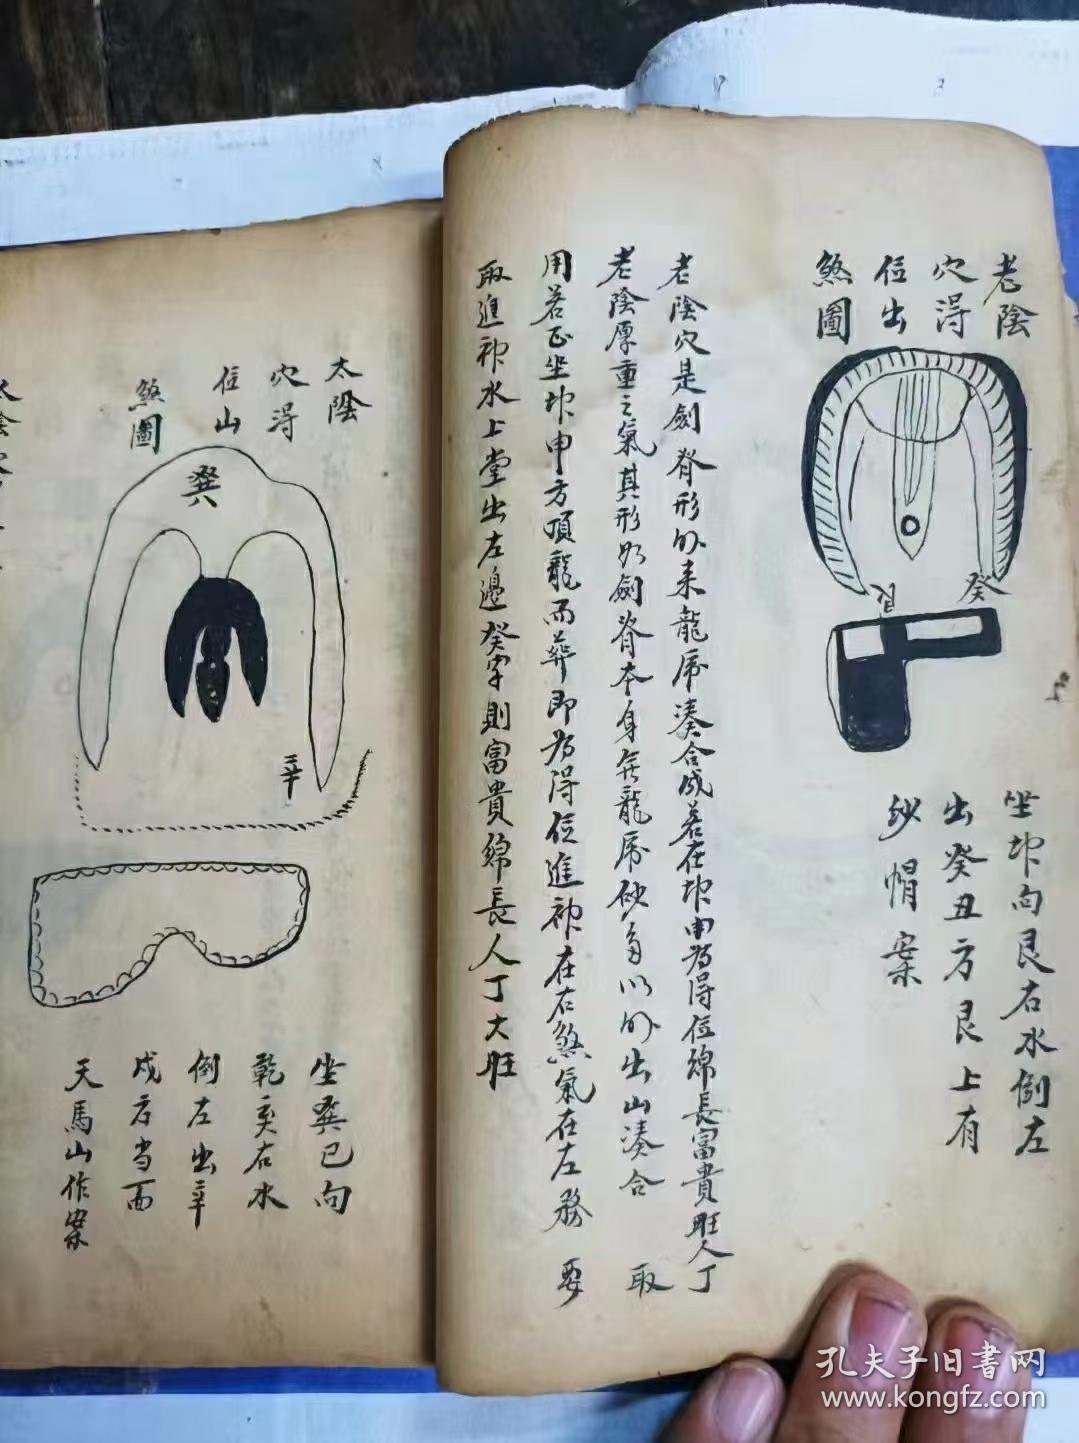 老陰
穴淂
位出
煞圖
癸
艮
坐坤向艮右水倒左
出癸丑方艮上有
紗帽案
老陰穴是劍脊形外来龍虎湊合成若在坤申為得位綿長富貴旺人丁
老陰厚重之氣其形如劍脊本身無龍虎砂多以外出山湊合取
用若正坐坤申方頂龍而葬即為得位進神在右煞氣在左務要
取進神水上堂出左邊癸字則富貴綿長人丁大旺
太陰
穴淂
位山
煞圖
巽
辛
坐巽巳向
乾亥右水
倒左出辛
戍方当面
天馬山作案
太陰穴
孔夫子旧書网
www.kongfz.com